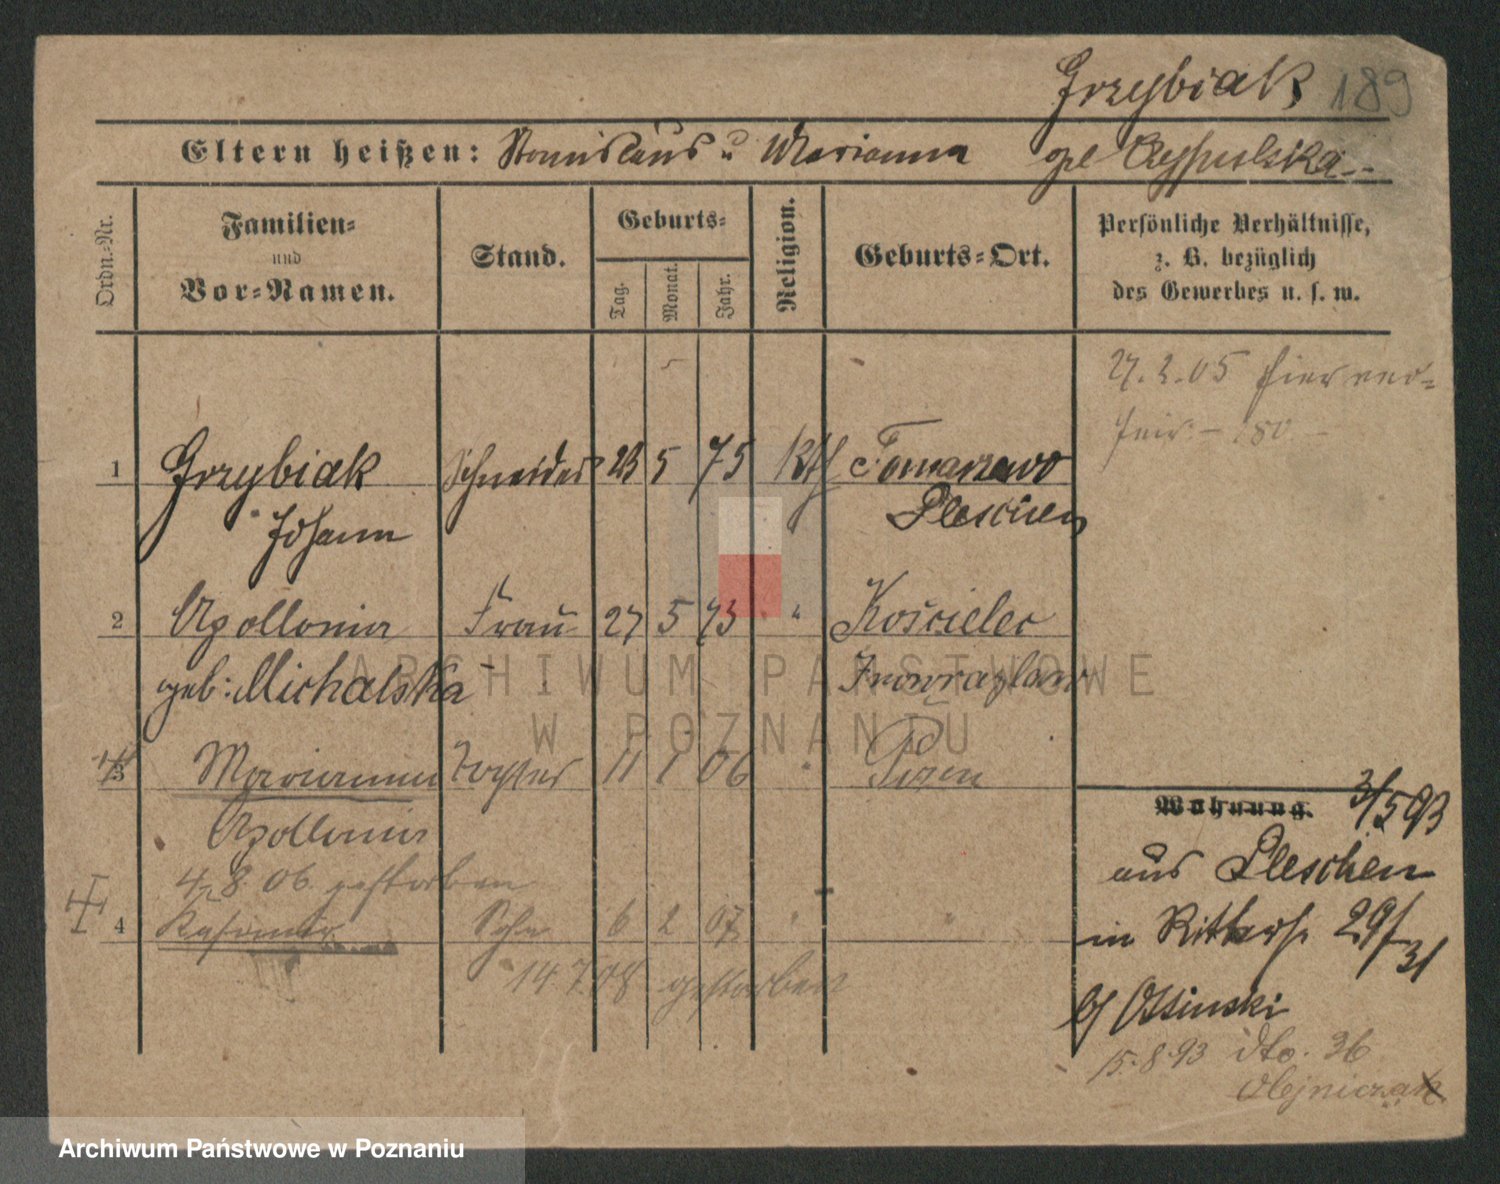 Grzybiak 189
Eltern heißen: Stanislaus u Marianna geb
Ordn.-Nr.
Familien-
und
Vor-Namen.
Stand.
Geburts-
Tag.
Monat.
Jahr.
Religion.
Geburts-Ort.
Persönliche Verhältnisse,
z. B. bezüglich
des Gewerbes u. s. w.
27.2.05 hier ver-
heir. - 180 -
1 Grzybiak Schneider 23 5 75 kth Tomarzewo
Johann Pleschen
2 Apollonia Frau 27 5 73 " Kościelec
geb: Michalska Inowrazlaw
3 Marianna Tochter 11 1 06 " Posen
Apollonia
4.8.06. gestorben
4 Kasimir Sohn 6 2 07 " "
14.7.08 gestorben
Wohnung. 3/5 93
aus Pleschen
in Ritterst. 29/31
b/ Ossinski
15.8.93 dto. 36
Olejniczak
ARCHIWUM PAŃSTWOWE
W POZNANIU
Archiwum Państwowe w Poznaniu